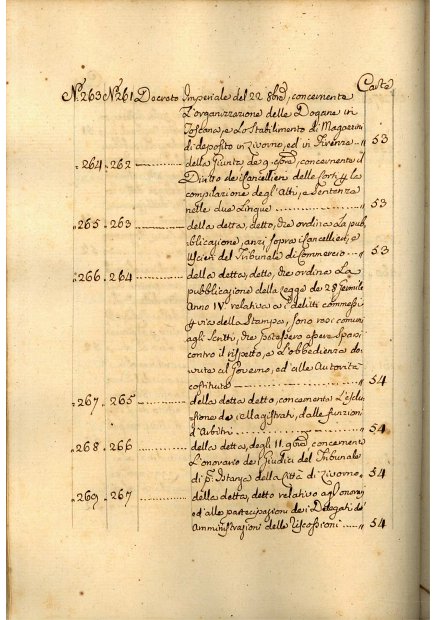 Carte
N.° 263 N.° 261 Decreto Imperiale del 22 8bre, concernente
L'organizzazione delle Dogane in
Toscana, e lo Stabilimento di Magazzini
di deposito in Livorno, ed in Firenze " 53
264 262 della Giunta de 9. concernente il
Diritto de Cancellieri delle Corti p la
compilazione degl'Atti, e Sentenza
nelle due Lingue " 53
265 263 della detta, detto, che ordina La pub
blicazione, anzi sopra i Cancellieri, e
Uscieri del Tribunale di Commercio " 53
266 264 della detta, detto, che ordina La
pubblicazione della Legge de 28
Anno IV relativa a i delitti commessi
p via della Stampa, sono
agli Scritti, che potessero essere Sparsi
contro il rispetto, e L'obbedienza do
vuta al Governo, ed alle Autorità
costituite " 54
267 265 della detta detto, concernente L'esclu
sione de Magistrati, dalle funzioni
d'Arbitri " 54
268 266 della detta, degli 11. concernente
L'onorario dei Giudici del Tribunale
di p.ª Istanza della Città di Livorno " 54
269 267 della detta, detto relativo agl'onorarj
ed alle partecipazioni dei Delegati de
Amministrazioni delle Riscossioni " 54